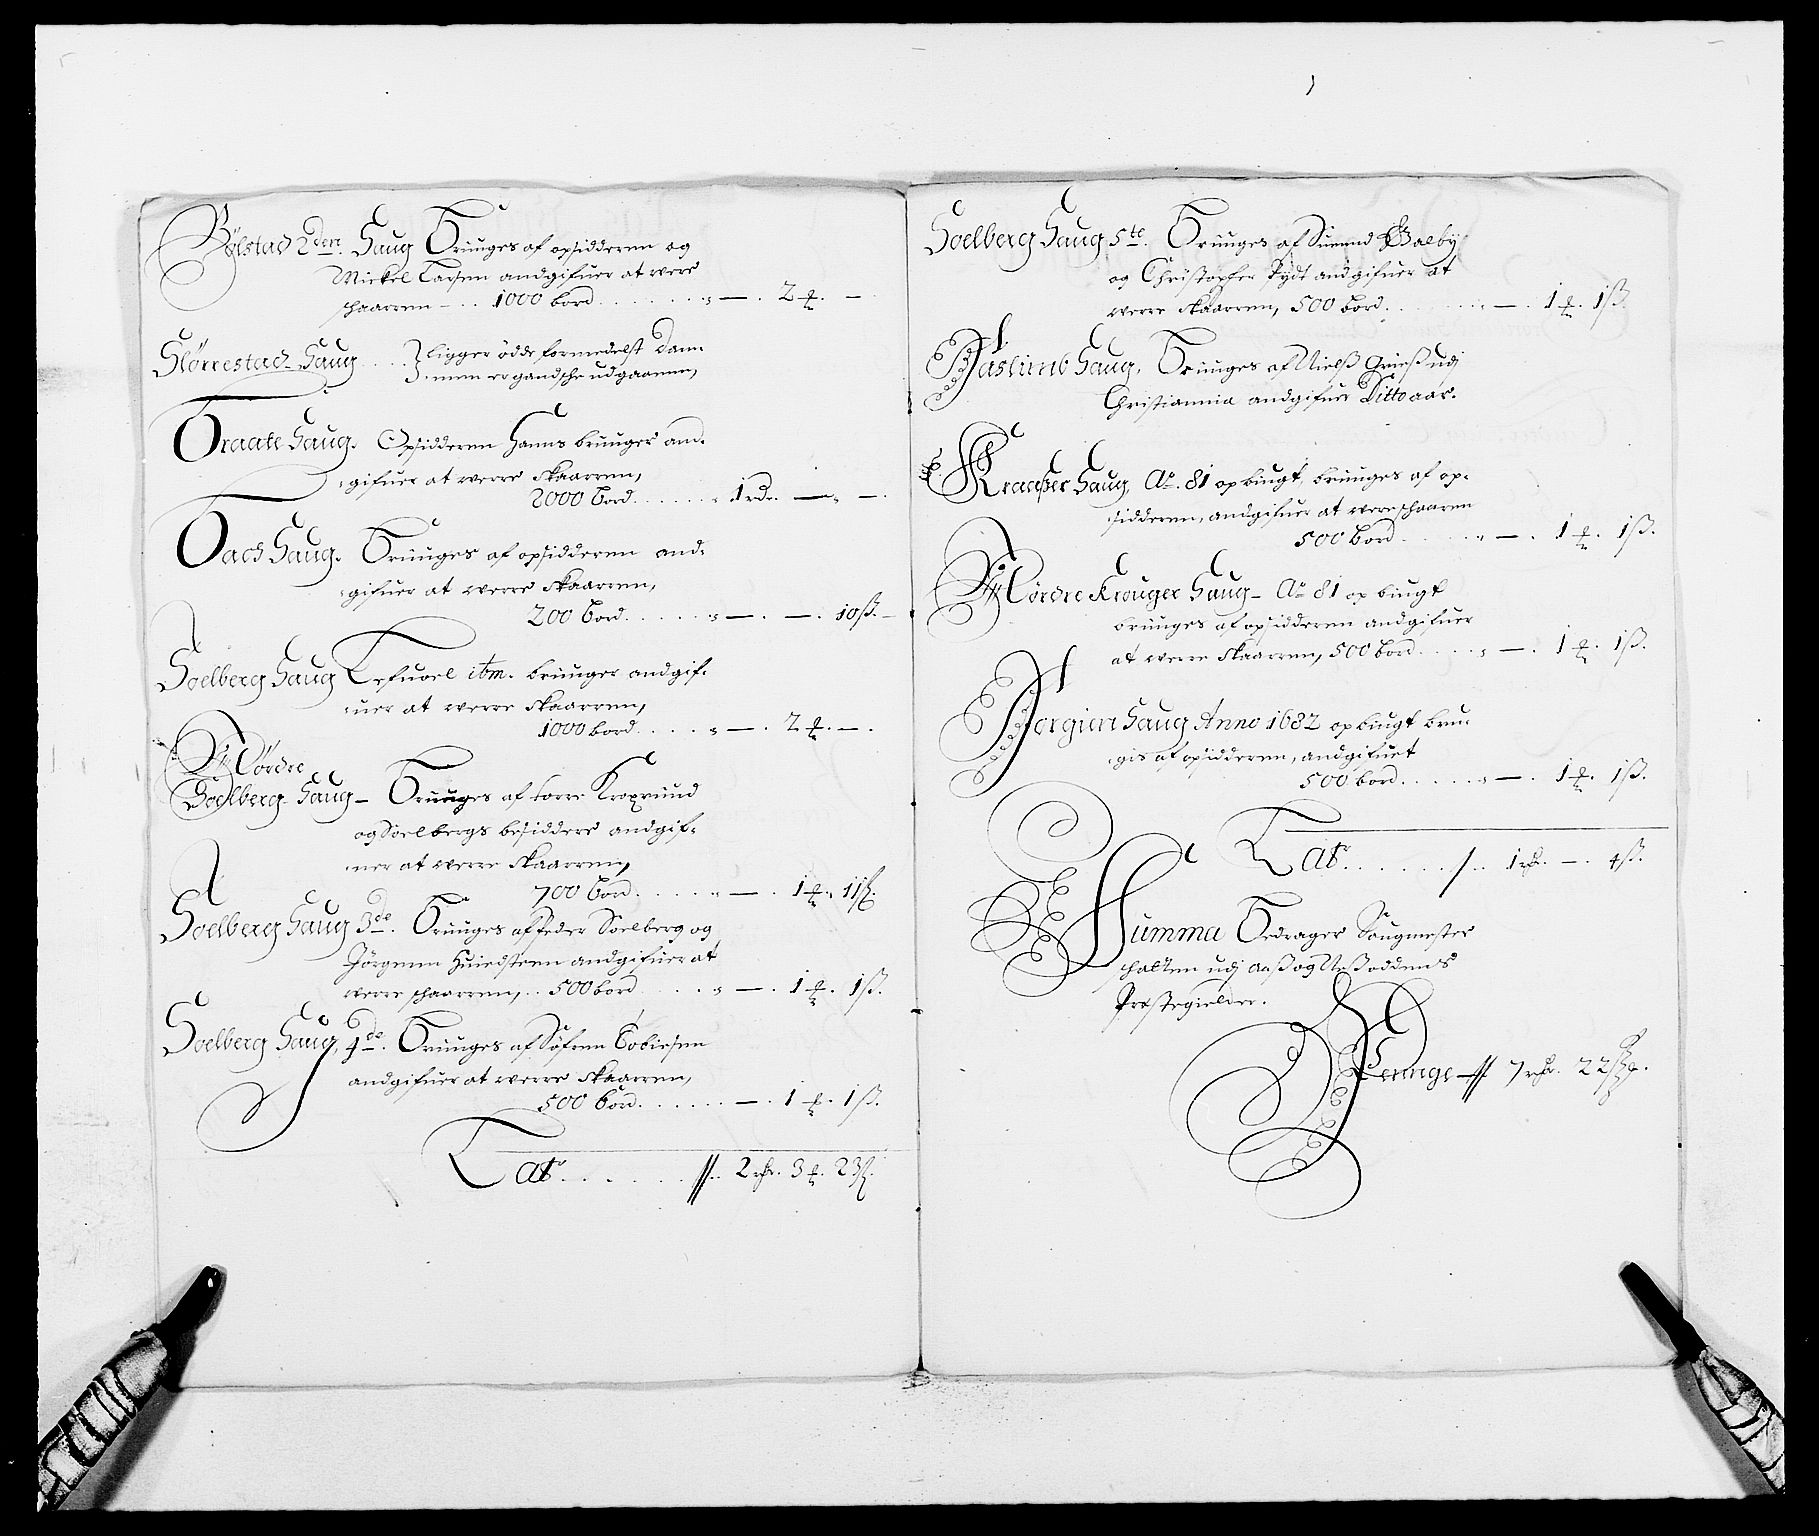 Bølstad 2den Saug Bruuges af opsidderen og
Mickel Larsen andgifuer at were
schaarren - . . 1000 bord . . . . . . . " — . 2 ℔. —
Slørrestad Saug . . . . ligger øde formedelst Dam-
men er gandsche udgaaenn,
Braate Saug. Opsidderen Hanns bruuger and-
gifuer at werre skaarren,
2000 bord . . . . . " 1 rd. — " —.
Aas Saug. Bruuges af opsidderen and-
gifuer at werre skaarren,
200 bord . . . . . " — . — . 10 ß. —
Soelberg Saug Lefuoel itm. bruuger andgif-
uer at werre skaarren,
1000 bord . . . . " — . 2 ℔. — .
Nørdre
Soelberg Saug — Bruuges af Korre Kroprund
og Soelbergs besiddere andgif-
uer at werre skaarren,
700 bord . . . . " — . 1 ℔. 11 ß.
Soelberg Saug 3de. Bruuges af Peder Soelberg og
Jørgenn Huiedsteen andgifuer at
werre schaarren, . . 500 bord . . . . " — . 1 ℔. 1 ß.
Soelberg Saug, 4de. Bruuges af Søfren Tobiesen
andgifuer at werre skaarren,
500 bord . . . . . . — . 1 ℔. 1 ß.
Lat . . . . . . // . . 2 rdr. 3 ℔. 23 ß.
Soelberg Saug 5te. Bruuges af Suennd Galby
og Christopfer Pydt andgifuer at
werre skaarren, 500 bord . . . . . " — . 1 ℔. 1 ß.
Faslimb Saug, Bruuges af Nielß Grüeß udj
Christiannia andgifuer Ditto aar.
Kraaßer Saug, Ao. 81 opbiugt, bruuges af op-
sidderen, andgifuer at were schaaren
500 bord . . . . . " — . 1 ℔. 1 ß.
Nørdre Krouger Saug — Ao 81 opbiugt
bruuges af opsidderen andgifuer
at werre skaarren, 500 bord . . . . " — . 1 ℔. 1 ß.
Jergien Saug Anno 1682 opbiugt bru-
gis af opsidderen, andgifuet
500 bord . . . . . " — . 1 ℔. 1 ß.
Lat . . . . . . / . . 1 rdr. — . 4 ß.
Summa Bedrager Saugmester
schatten udj Aaß og Neßoddens
Præstegielder.
Pennge — // 7 rdr. 22 ß.